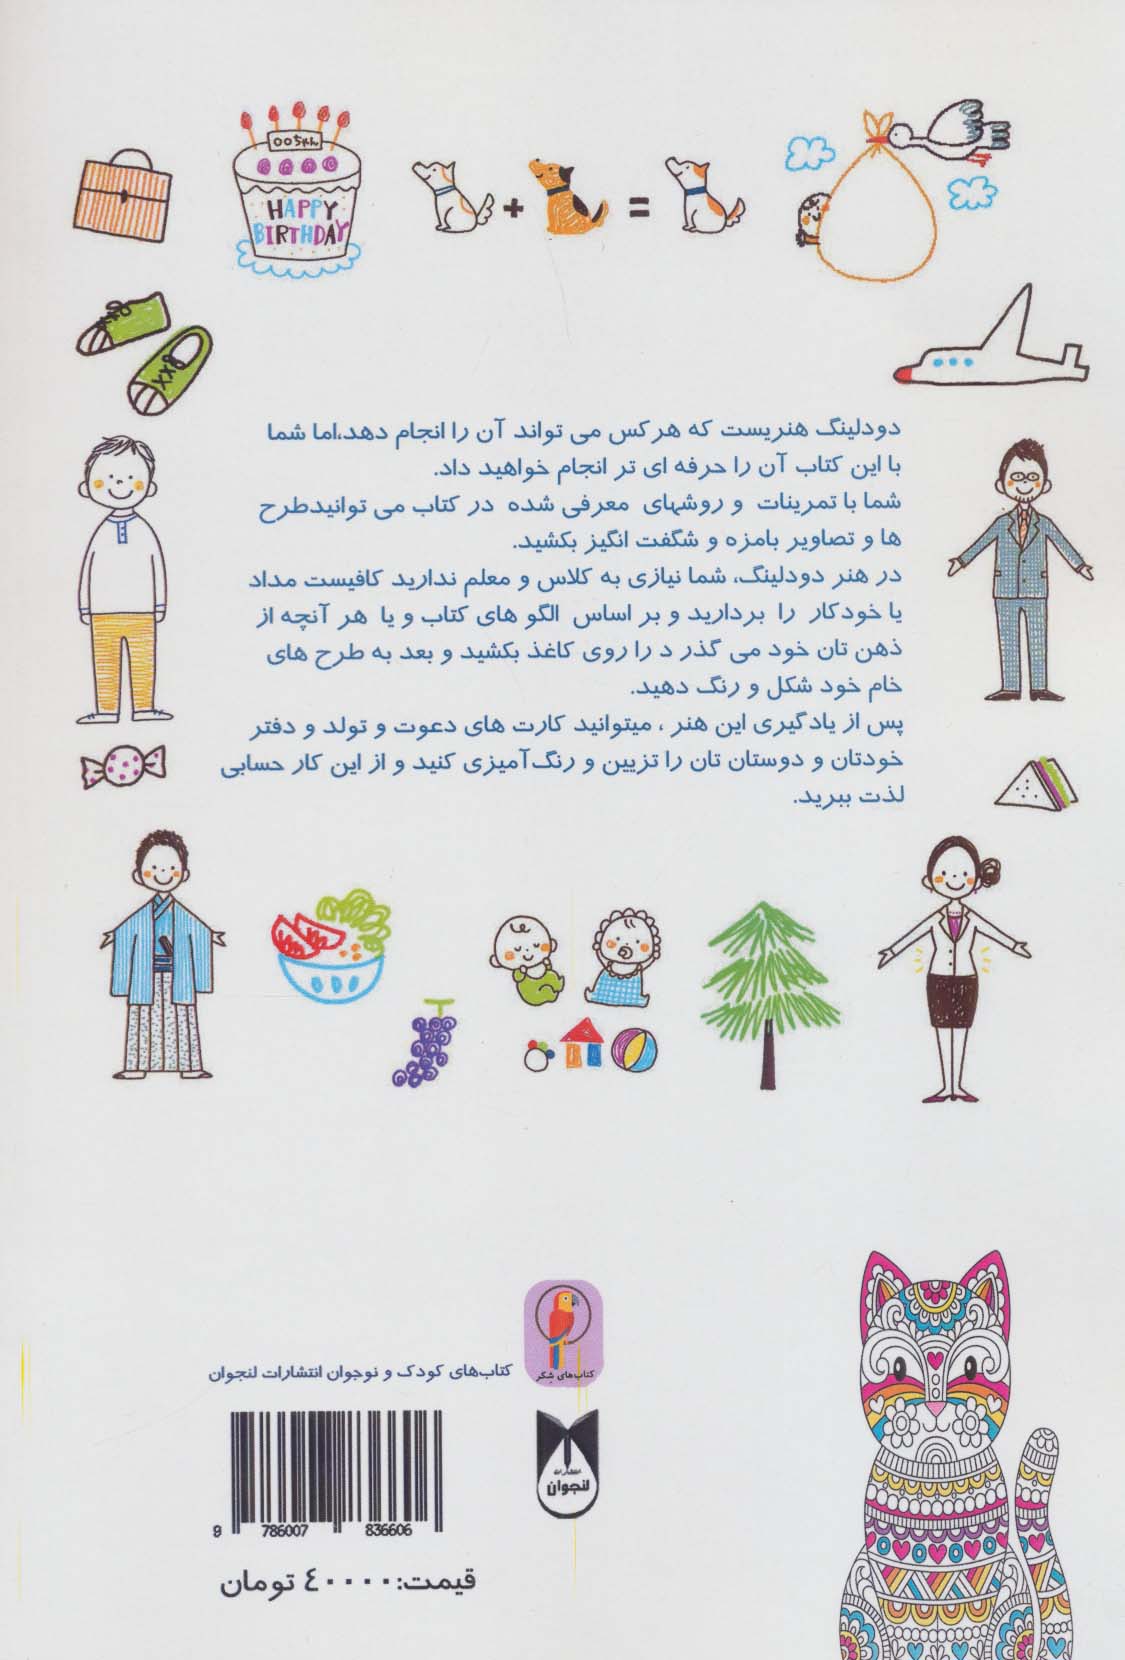 ○○ちゃん
HAPPY
BIRTHDAY
+ =
دودلینگ هنریست که هر کس می تواند آن را انجام دهد،اما شما
با این کتاب آن را حرفه ای تر انجام خواهید داد.
شما با تمرینات و روشهای معرفی شده در کتاب می توانیدطرح
ها و تصاویر بامزه و شگفت انگیز بکشید.
در هنر دودلینگ، شما نیازی به کلاس و معلم ندارید کافیست مداد
یا خودکار را بردارید و بر اساس الگو های کتاب و یا هر آنچه از
ذهن تان خود می گذر د را روی کاغذ بکشید و بعد به طرح های
خام خود شکل و رنگ دهید.
پس از یادگیری این هنر ، میتوانید کارت های دعوت و تولد و دفتر
خودتان و دوستان تان را تزیین و رنگ‌آمیزی کنید و از این کار حسابی
لذت ببرید.
کتاب‌های شگر
کتاب‌های کودک و نوجوان انتشارات لنجوان
انتشارات
لنجوان
9 786007 836606
قیمت:٤٠٠٠٠ تومان